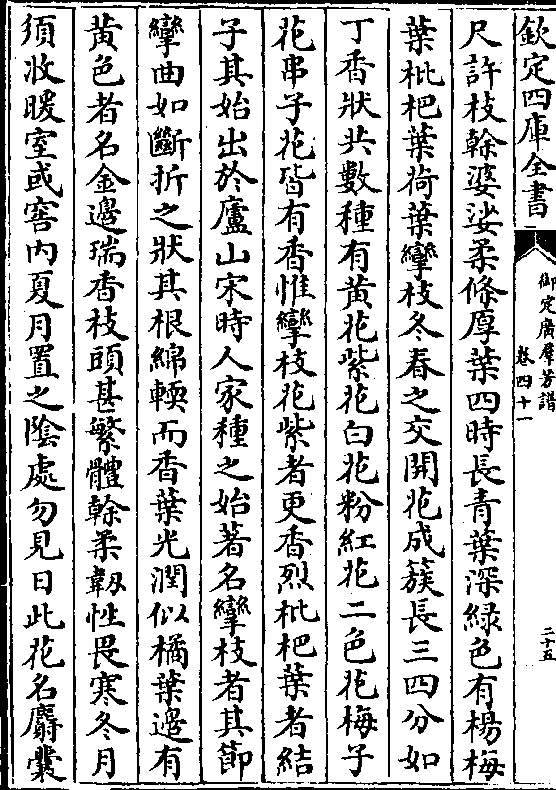 欽定四庫全書
御定廣羣芳譜
卷四十一
二十五
尺許枝榦婆娑柔條厚葉四時長青葉深緑色有楊梅
葉枇杷葉荷葉攣枝冬春之交開花成簇長三四分如
丁香狀共數種有黄花紫花白花粉紅花二色花梅子
花串子花皆有香惟攣枝花紫者更香烈枇杷葉者結
子其始出於廬山宋時人家種之始著名攣枝者其節
攣曲如斷折之狀其根綿輭而香葉光潤似橘葉邉有
黄色者名金邉瑞香枝頭甚繁體榦柔韌性畏寒冬月
須收暖室或窖内夏月置之陰處勿見日此花名麝囊